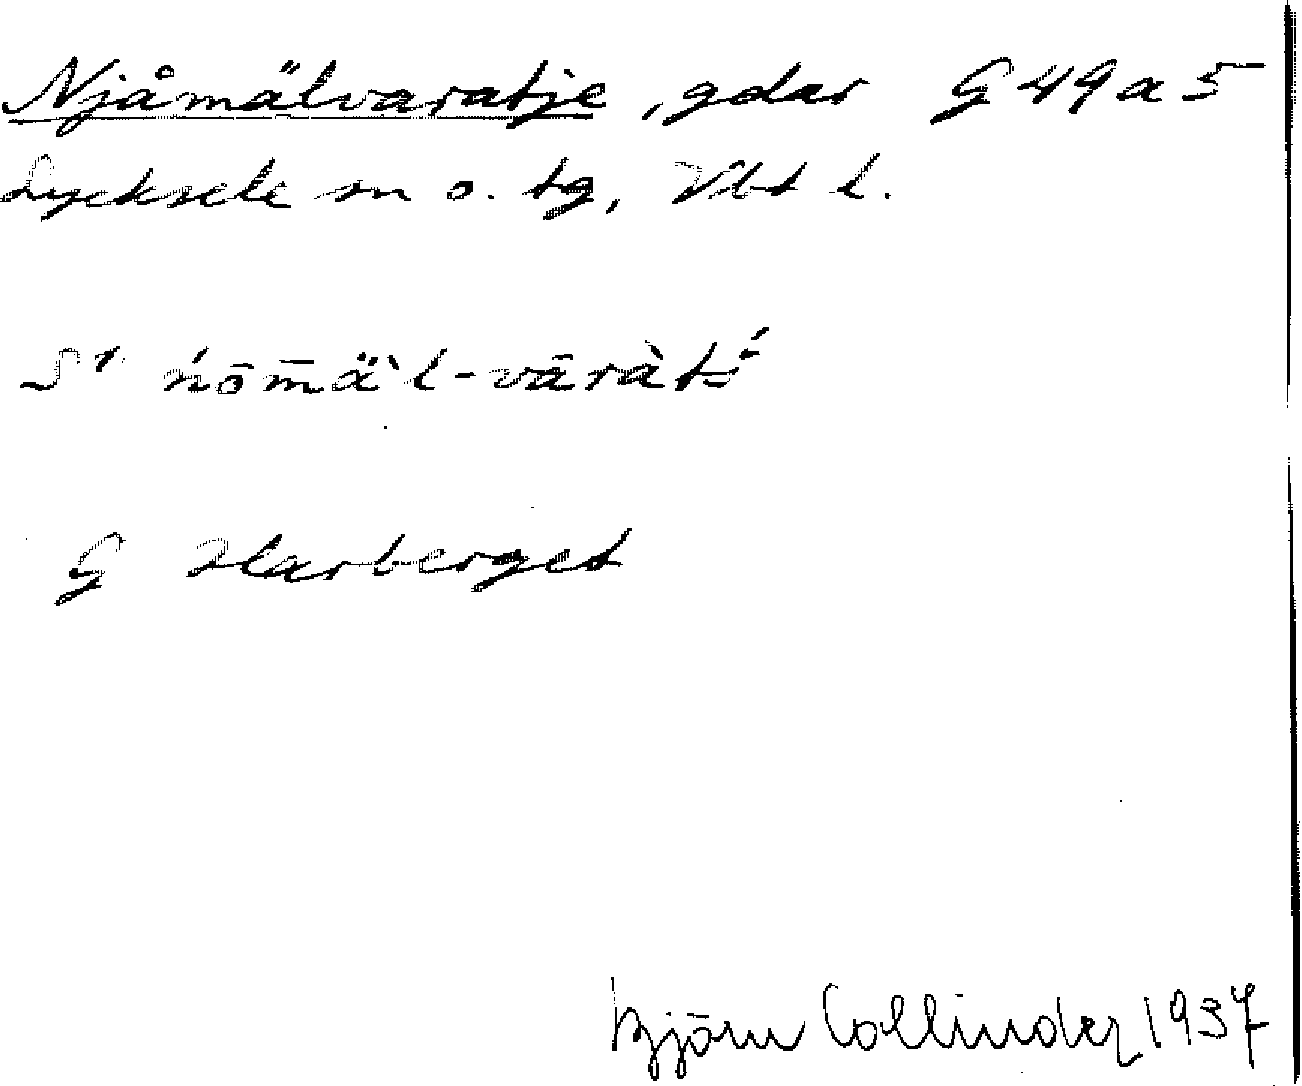 Njåmälvaratje, gdar G 49 a 5
Lycksele sn o. tg, Vbt l.
S1 ńōm̄ä̀l-vāràt́ś
G Harberget
Björn Collinder 1937